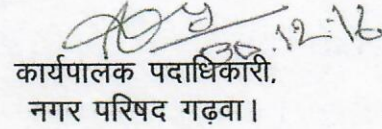 30.12.16
कार्यपालक पदाधिकारी,
नगर परिषद गढ़वा।